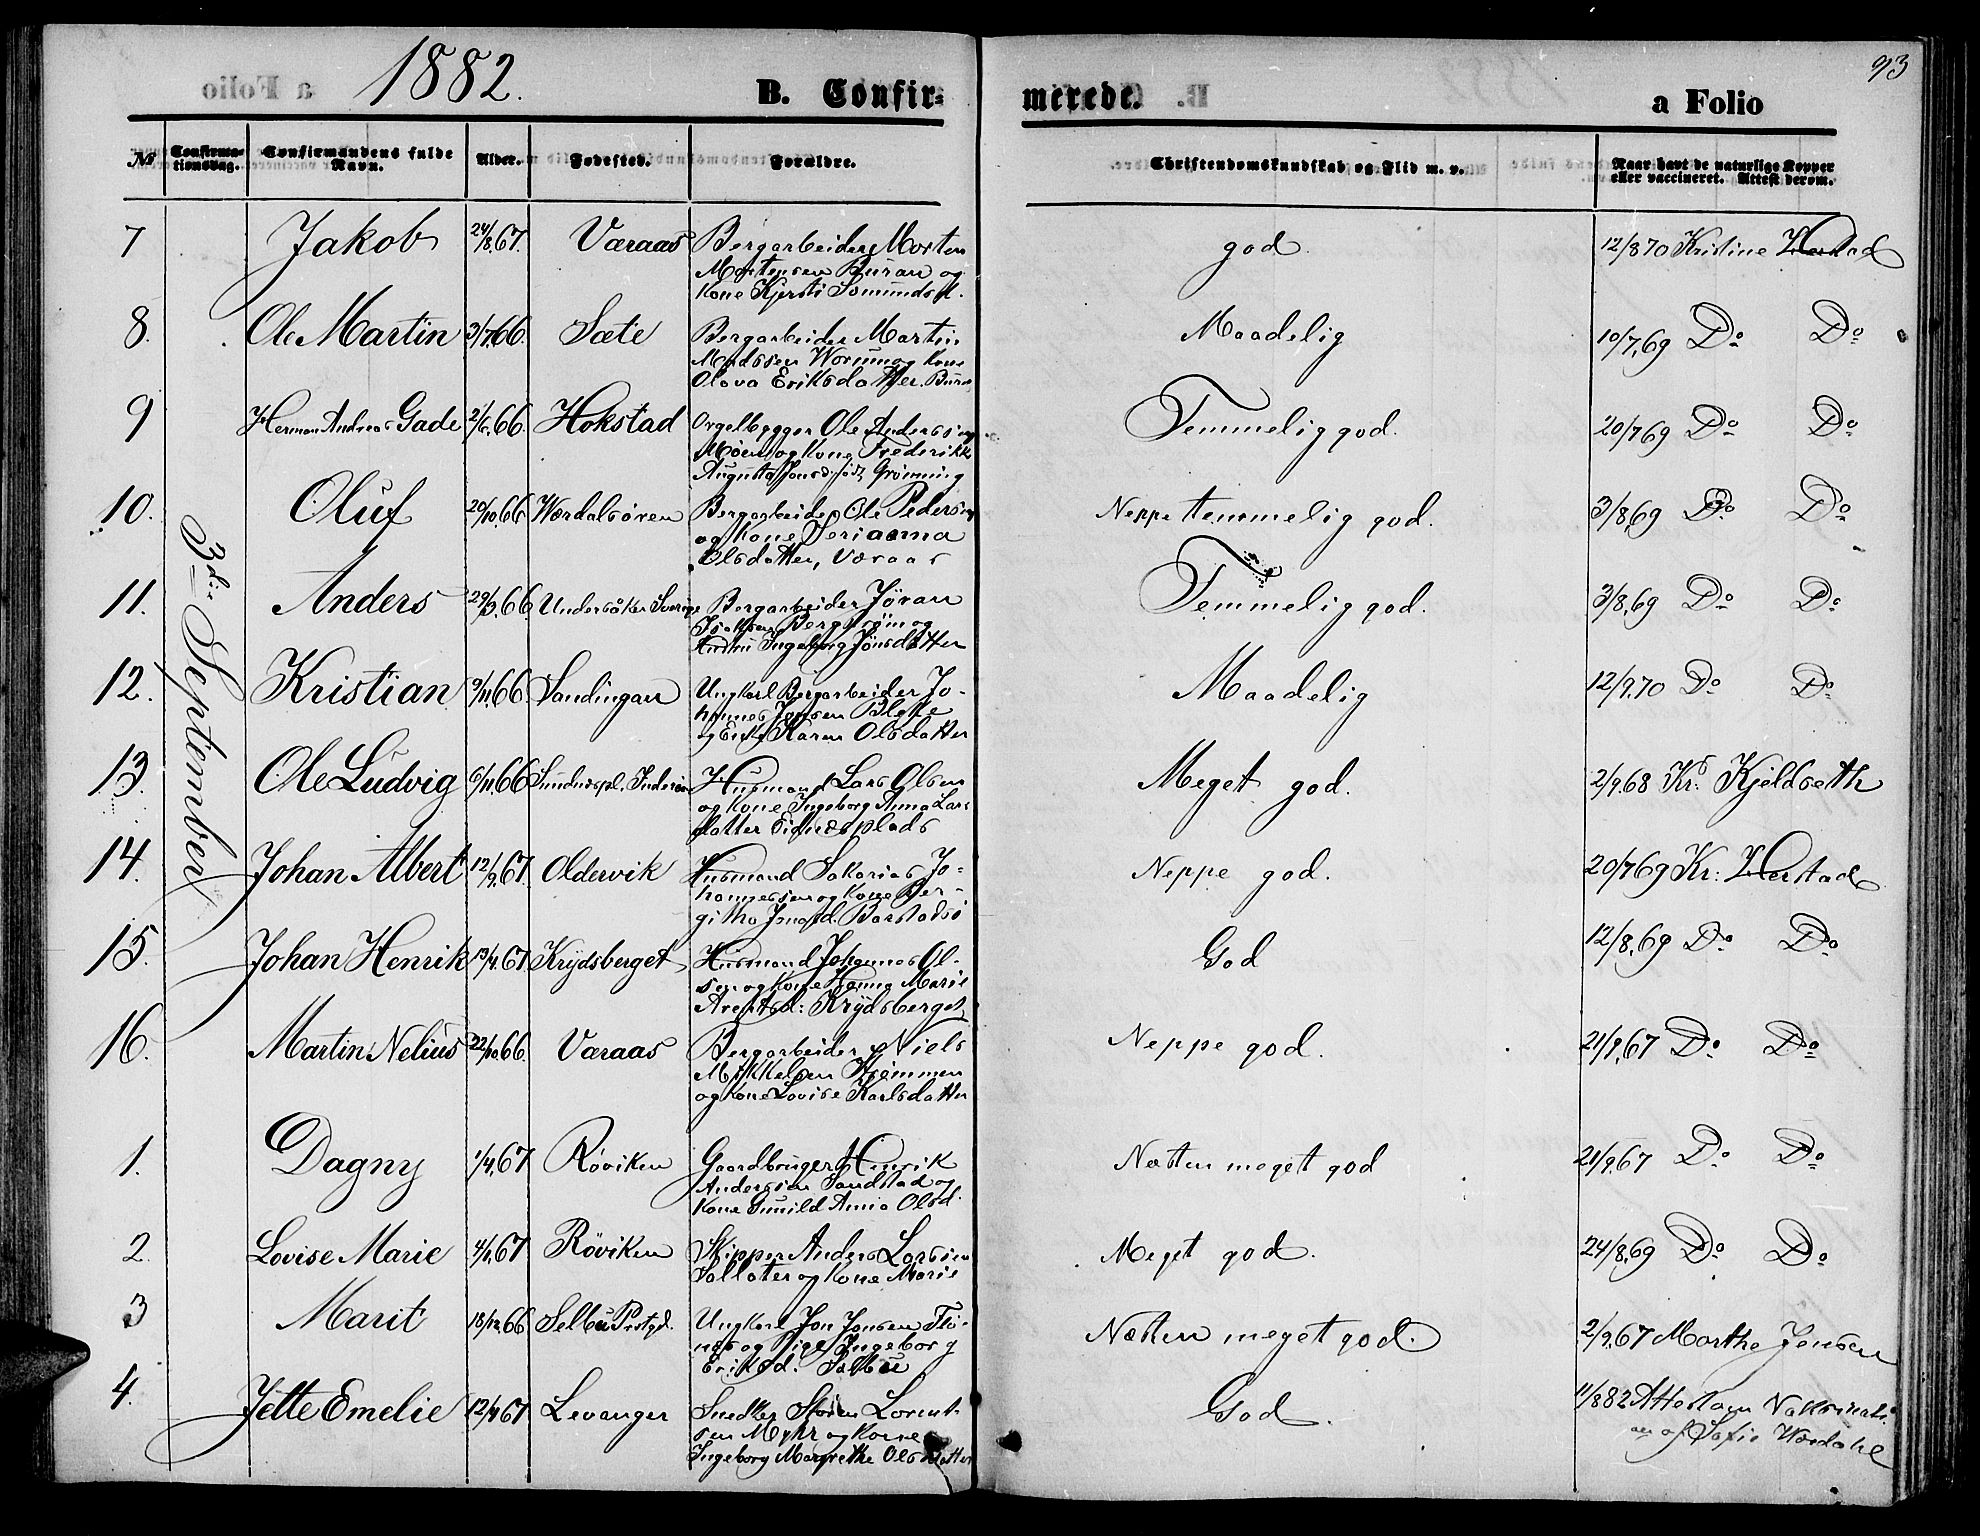 1882.
93
B. Confir-
merede.
a Folio
№
Confirma-
tionsdag.
Confirmandens fulde
Navn.
Alder.
Fødested.
Forældre.
Christendomskundskab og Flid m. v.
Naar havt de naturlige Kopper
eller vaccineret. Attest derom.
3die September
7 Jakob 24/8.67. Væraas Bergarbeider Morten
Mortensen Buran og
Kone Kjersti
god. 12/8 70 Kristine Værstad
8. Ole Martin 3/7.66. Sæte Bergarbeider Martin
Madssen og Kone
Olava Eriksdatter. Buran
Maadelig 10/7.69 Do Do
9 Herman Andreas Gade 2/6.66. Hokstad Orgelbygger Ole Anderssen
Moen og Kone Frederikke
Augusta Jonsd. født Grønning
Temmelig god. 20/7 69 Do Do
10. Oluf 20/10.66. Værdalsøren Bergarbeider Ole Pedersen
og Kone Serianna
Olsdatter, Væraas
Neppe temmelig god. 3/8.69 Do Do
11. Anders 29/3.66 Undersåker Sverige Bergarbeider Jöran
Isaksen Bergström og
Hustru Ingeborg Jönsdatter
Temmelig god. 3/8.69 Do Do
12. Kristian 9/11.66. Ungkarl Bergarbeider Jo-
hannes Jensen
og Karen Olsdatter
Maadelig 12/9.70 Do Do
13. Ole Ludvig 6/11.66 Husmand Lars Olsen
og Kone Ingeborg Anna Lars
datter Eidnesplads
Meget god. 2/9.68 Kr. Kjeldseth
14. Johan Albert 12/9.67. Oldervik Husmand Sakarias Jo-
hannessen og Kone Ber-
githa Barstad
Neppe god. 20/7 69 Kr: Værstad
15. Johan Henrik 13/4.67 Krydsberget Husmand Johannes Ol-
sen og Kone Hanna Marie
Arentsd: Krydsberget
God 12/8.69 Do Do
16. Martin Nelius 22/10.66. Væraas Bergarbeider Niels
Mikkelsen
og Kone Lovise Karlsdatter
Neppe god. 21/9.67 Do Do
1. Dagny 1/4.67 Røviken Gaardbruger Henrik
Anderssen Sandstad og
Kone Gunild Anna Olsd.
Næsten meget god 21/9.67 Do Do
2. Lovise Marie 4/1.67 Røviken Skipper Anders Larssen
og Kone Marie
Meget god. 24/8.69 Do Do
3 Marit 18/12.66. Selbu Prstgd. Ungkarl Jon Jonsen Flø-
næs og Pige Ingeborg
Eriksd. Selbu
Næsten meget god. 2/9.67 Marthe Jensen
4. Jette Emelie 12/4 67 Levanger Snedker Lorent-
sen Myhr og Kone
Ingeborg Margrethe Olsdatter
God. 11/8 82 Attest om Vaksinati-
on af Sofie Værdahl